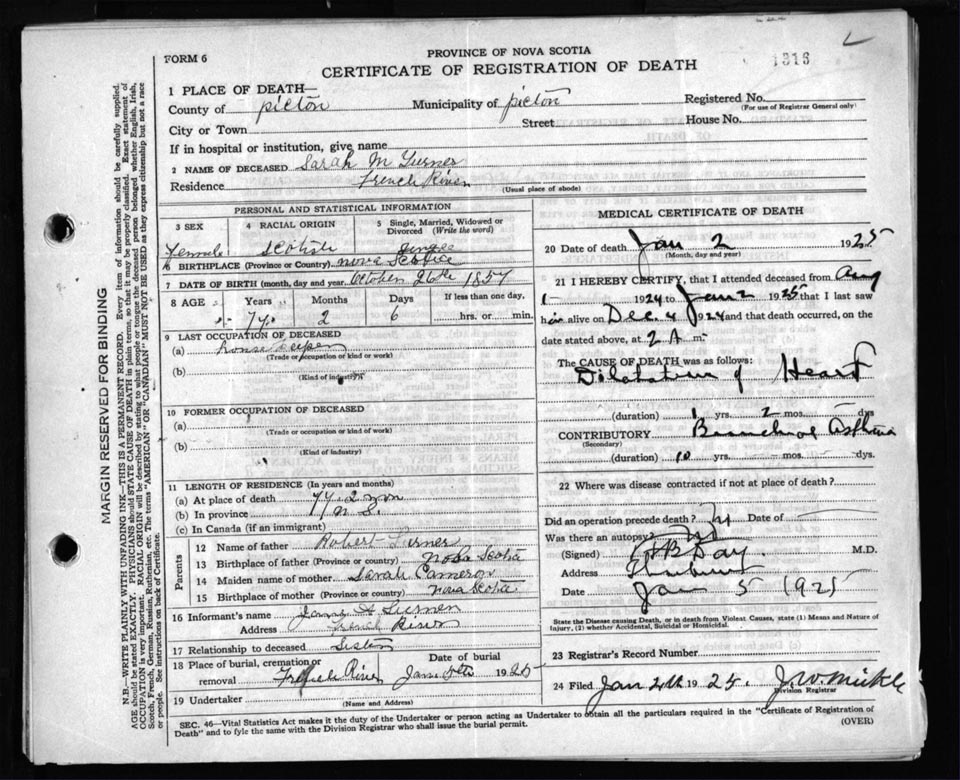 FORM 6
PROVINCE OF NOVA SCOTIA
1316
CERTIFICATE OF REGISTRATION OF DEATH
1 PLACE OF DEATH—
County of Picton Municipality of Picton Registered No.
(For use of Registrar General only)
City or Town Street House No.
If in hospital or institution, give name
2 NAME OF DECEASED Sarah M Turner
Residence French River
(Usual place of abode)
PERSONAL AND STATISTICAL INFORMATION
3 SEX 4 RACIAL ORIGIN 5 Single, Married, Widowed or Divorced (Write the word)
Female Scotish Single
6 BIRTHPLACE (Province or Country) Nova Scotia
7 DATE OF BIRTH (month, day and year) October 26th 1857
8 AGE Years Months Days If less than one day,
2 6 hrs. or min.
9 LAST OCCUPATION OF DECEASED
(a) house keeper
(Trade or occupation or kind or work)
(b)
(Kind of industry)
10 FORMER OCCUPATION OF DECEASED
(a)
(Trade or occupation or kind of work)
(b)
(Kind of industry)
11 LENGTH OF RESIDENCE (In years and months)
(a) At place of death
(b) In province N.S.
(c) In Canada (if an immigrant)
Parents
12 Name of father Robert Turner
13 Birthplace of father (Province or country) Nova Scotia
14 Maiden name of mother Sarah Cameron
15 Birthplace of mother (Province or country) Nova Scotia
16 Informant's name Turner
Address French River
17 Relationship to deceased Sister
18 Place of burial, cremation or removal French River Date of burial Jan 5th 1925
19 Undertaker
(Name and Address)
MEDICAL CERTIFICATE OF DEATH
20 Date of death Jan 2 1925
(Month, day and year)
21 I HEREBY CERTIFY, that I attended deceased from Aug
1 1924 to Jan 2 1925 that I last saw
h alive on Dec 4 1924 and that death occurred, on
date stated above, at 2 A m.
The CAUSE OF DEATH was as follows:
Dilatation of Heart
(duration) 1 yrs. 2 mos. dys
CONTRIBUTORY Bronchial Asthma
(Secondary)
(duration) 10 yrs. mos. dys.
22 Where was disease contracted if not at place of death?
Did an operation precede death? Date of
Was there an autopsy? No
(Signed) Day. M.D.
Address Thorburn
Date Jan 5 1925
State the Disease causing Death, or in death from Violent Causes, state (1) Means and Nature of
Injury, (2) whether Accidental, Suicidal or Homicidal.
23 Registrar's Record Number
24 Filed Jan 4th 1925. J.W. Mickle
Division Registrar
SEC. 46—Vital Statistics Act makes it the duty of the Undertaker or person acting as Undertaker to obtain all the particulars required in the "Certificate of Registration of
Death" and to fyle the same with the Division Registrar who shall issue the burial permit.
(OVER)
MARGIN RESERVED FOR BINDING
N.B.—WRITE PLAINLY WITH UNFADING INK—THIS IS A PERMANENT RECORD. Every item of information should be carefully supplied.
AGE should be stated EXACTLY. PHYSICIANS should STATE CAUSE OF DEATH in plain terms, so that it may be properly classified. Exact statement of
OCCUPATION is very important. RACIAL ORIGIN will be described by stating to what people or tongue the deceased person belonged whether English, Irish,
Scotch, French, German, Russian, Ruthenian, etc. The terms "AMERICAN" OR "CANADIAN" MUST NOT BE USED as they express citizenship but not a race
or people. See instructions on back of Certificate.